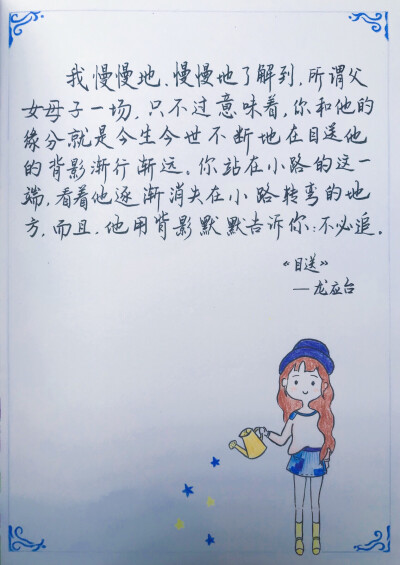 我慢慢地、慢慢地了解到，所谓父
女母子一场，只不过意味着，你和他的
缘分就是今生今世不断地在目送他
的背影渐行渐远。你站在小路的这一
端，看着他逐渐消失在小路转弯的地
方，而且，他用背影默默告诉你：不必追。
《目送》
—龙应台